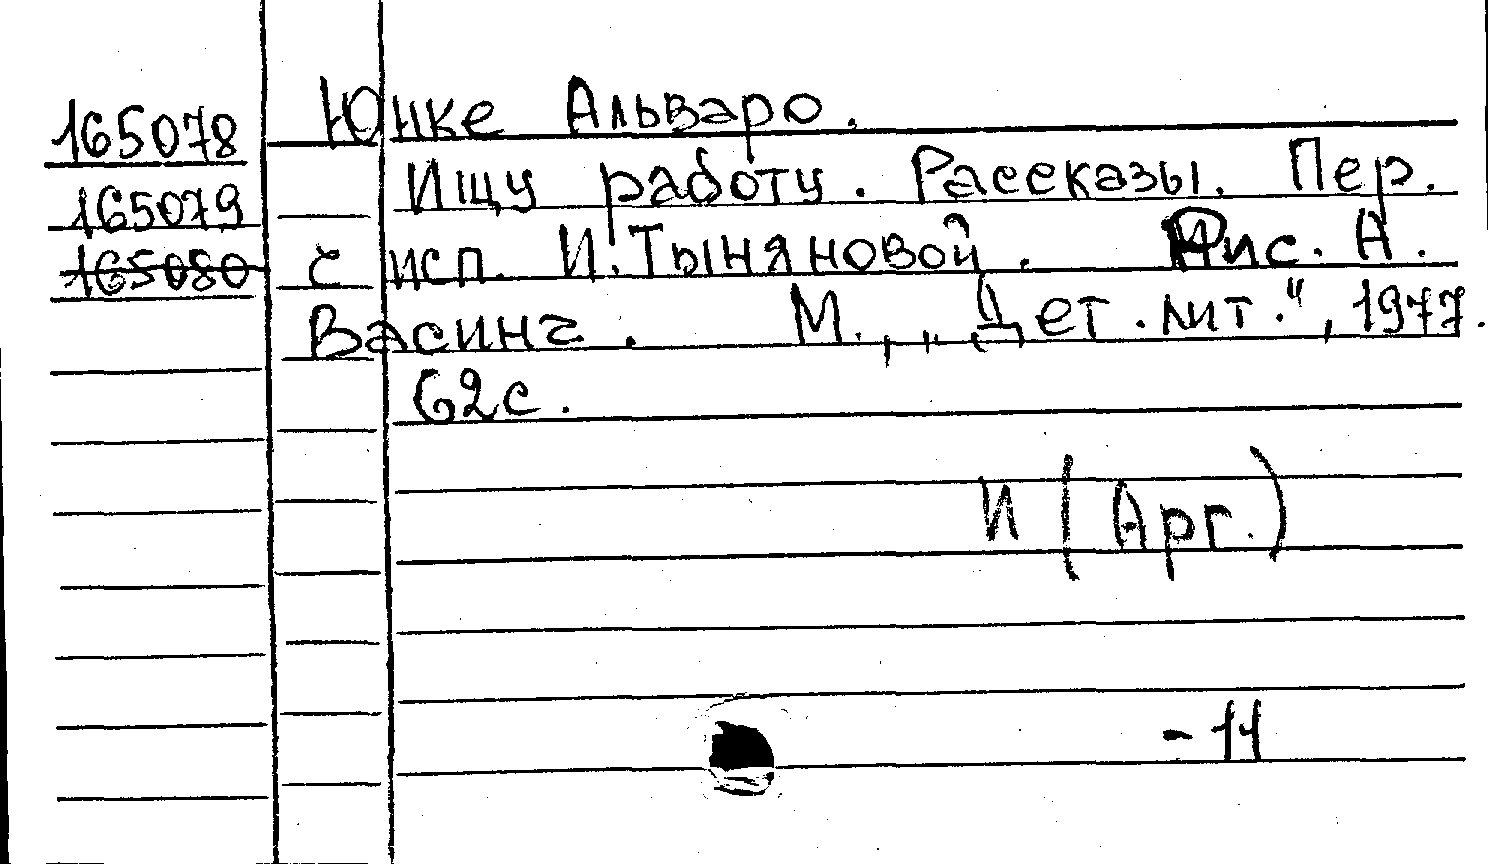 165078 Юнке Альваро.
165079 Ищу работу. Рассказы. Пер.
165080 с исп. И. Тыняновой. Рис. А.
Васинг. М., „Дет. лит.", 1977.
62с.
И (Арг.)
- 11